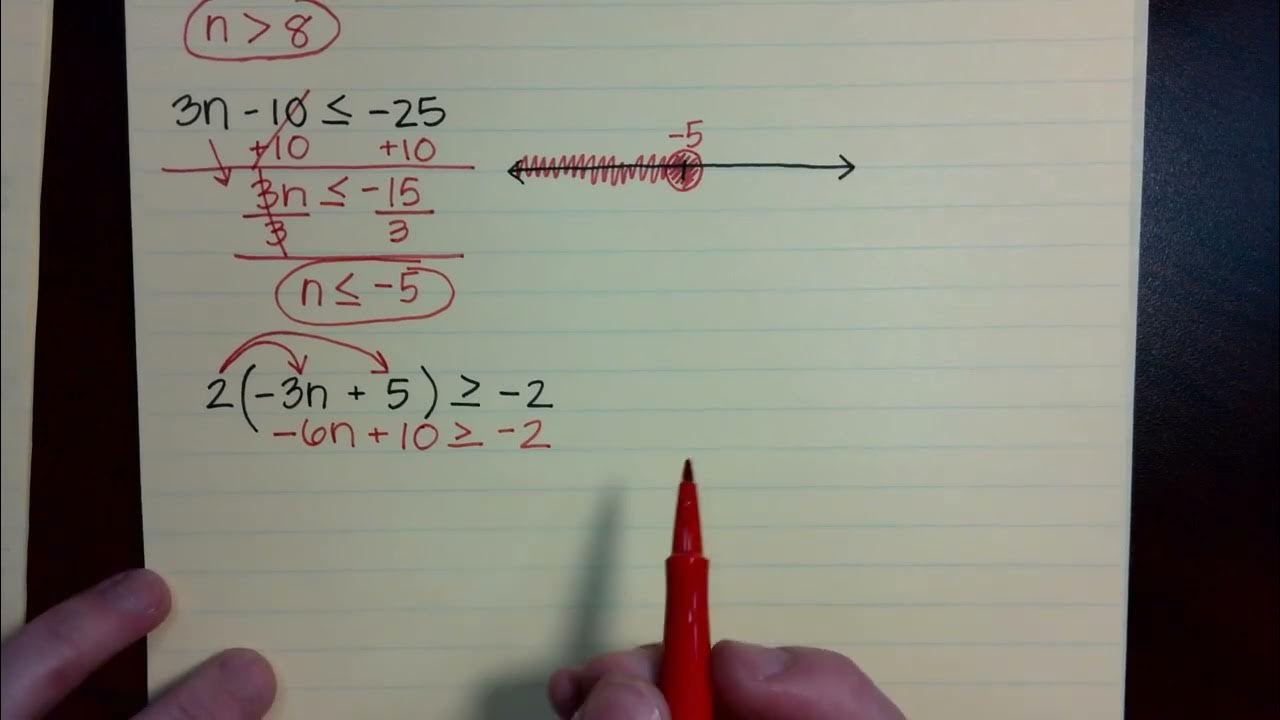 n > 8
3n - 10 ≤ -25
+10 +10
-5
3n ≤ -15
3 3
n ≤ -5
2(-3n + 5) ≥ -2
-6n + 10 ≥ -2